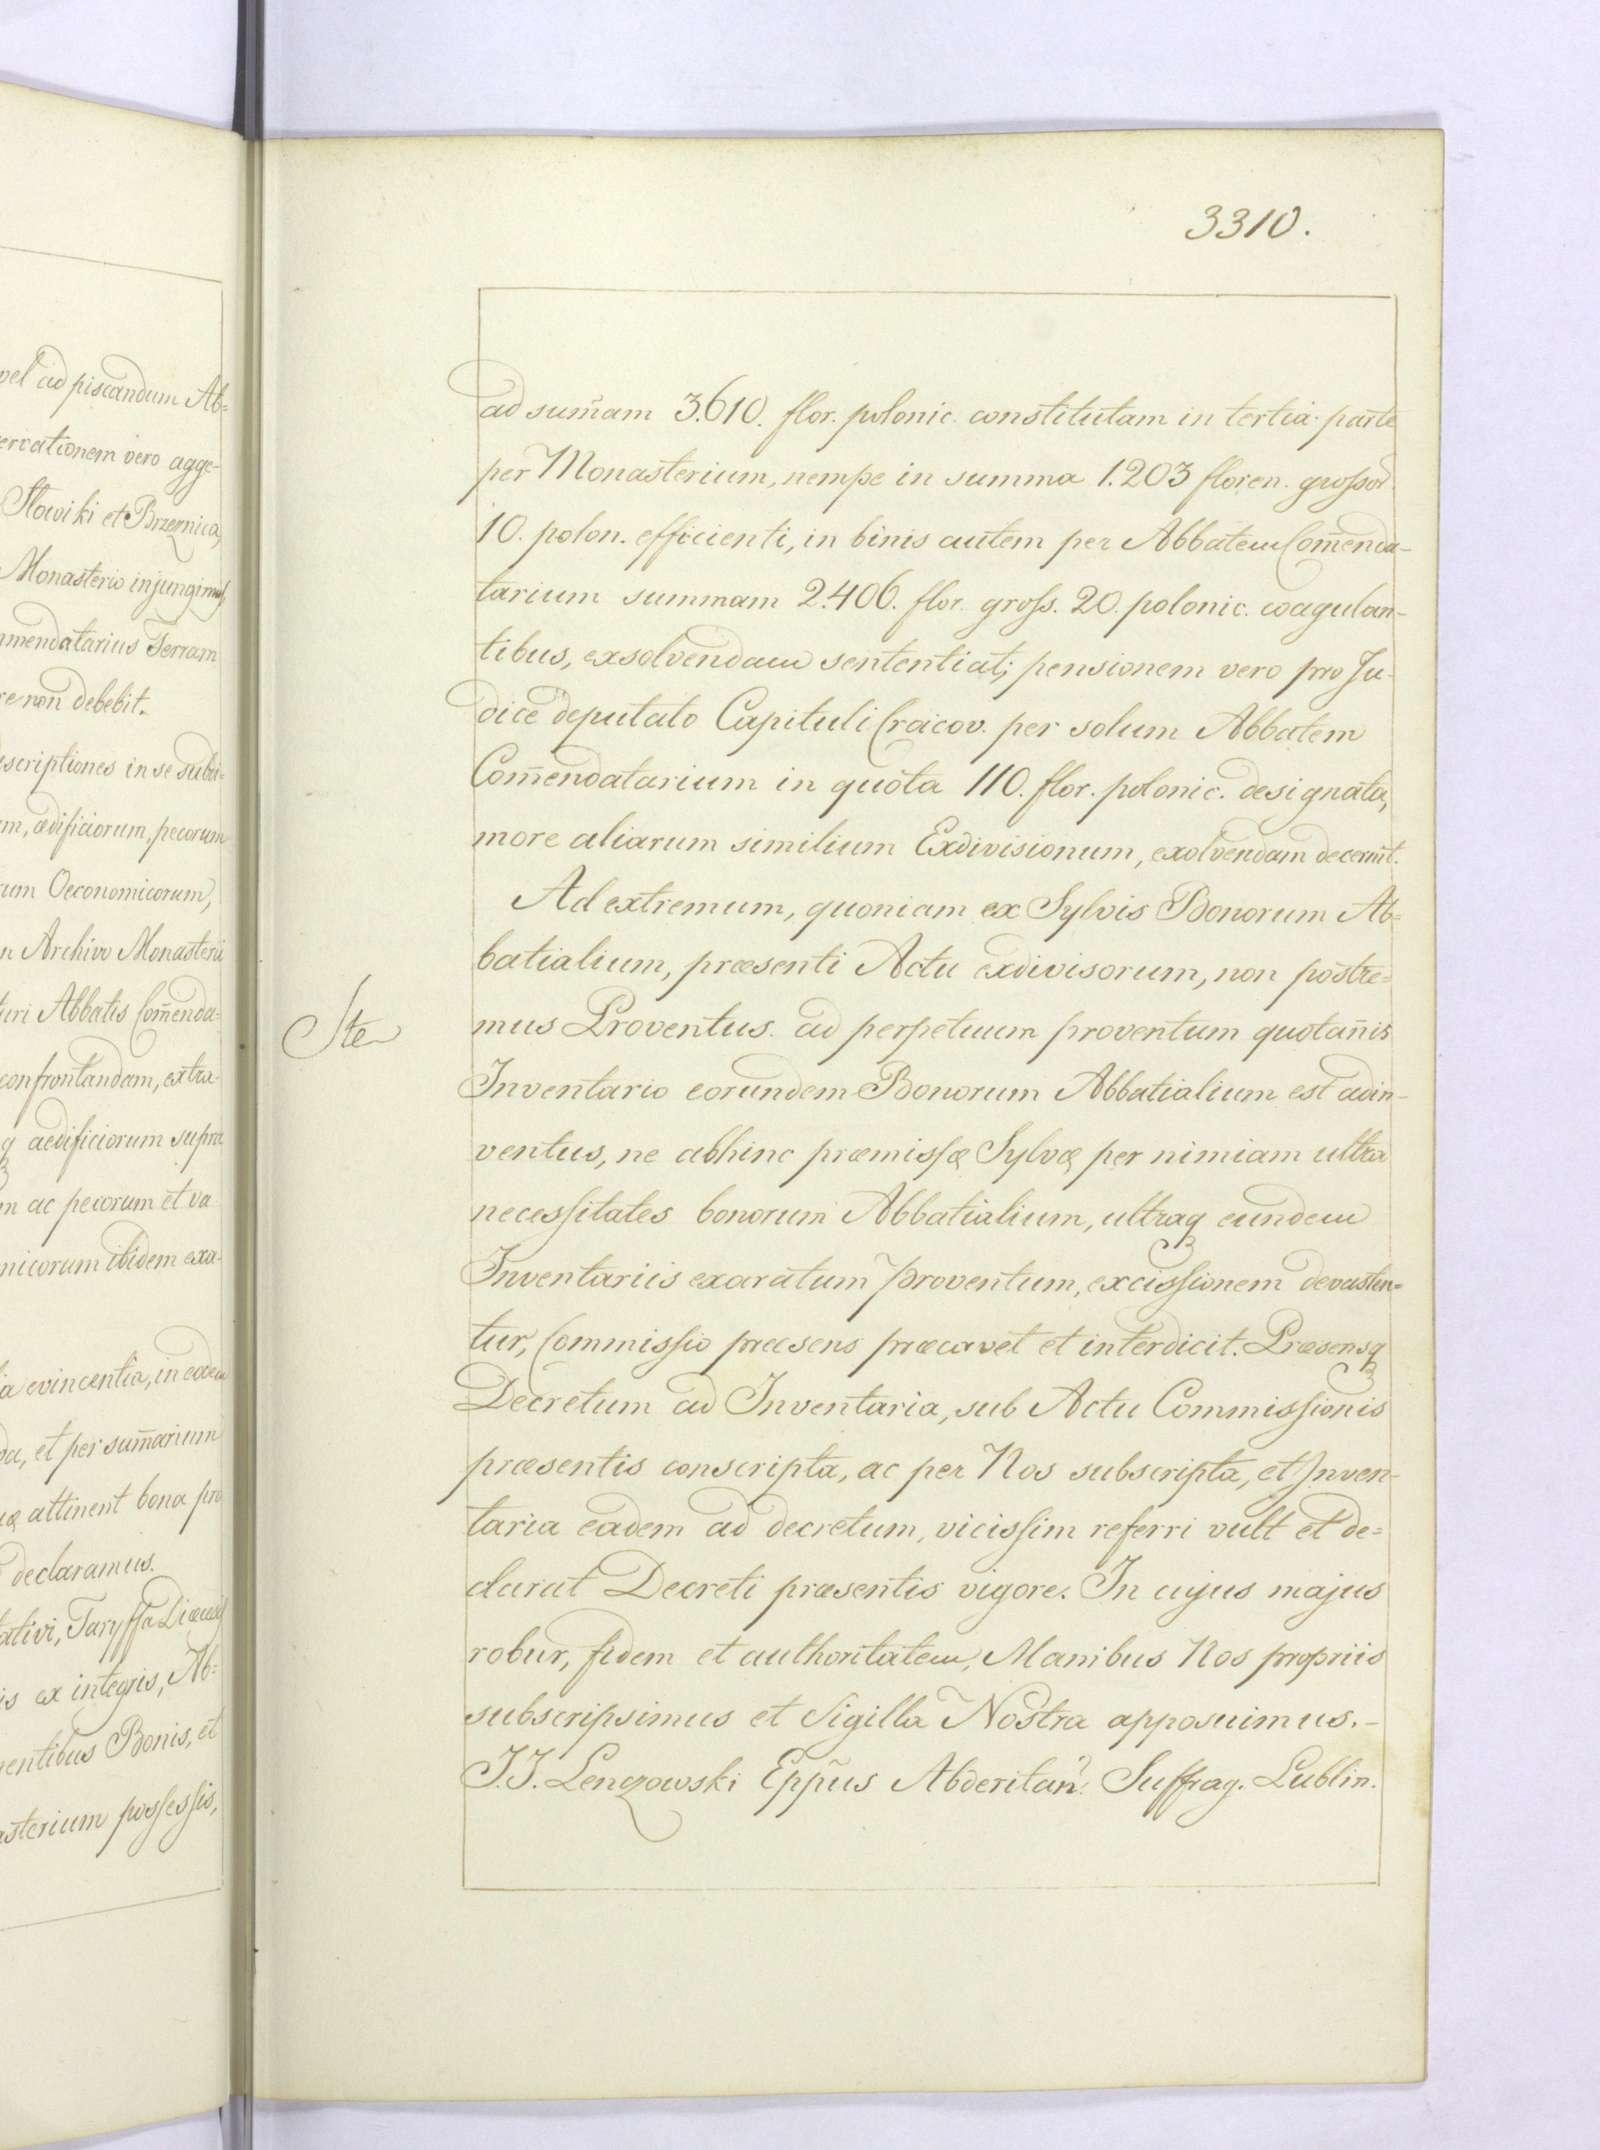 vel ad piscandum Ab=
ervationem vero agge-
Słowiki et Brzeznica,
Monasterio injungimus,
mmendatarius Terram
re non debebit.
scriptiones in se subi-
m, ædificiorum, pecorum
rum Oeconomicorum,
n Archivo Monasterii
turi Abbatis Com̃enda-
confrontandam, extra-
q aedificiorum supra
m ac pecorum et va
nicorum ibidem exa-
ia evincentia, in eadem
da, et per sum̃arium
æ attinent bona pro
declaramus.
tativi, Taryffa Diœces
is ex integris, Ab-
nentibus Bonis, et
asterium possessis,
3310.
ad sum̃am 3.610. flor. polonic. constitutam in tertia parte
per Monasterium, nempe in summa 1.203 floren. grossor
10. polon. efficienti, in binis autem per Abbatem Com̃enda-
tarium summam 2.406. flor. gross. 20. polonic. coagulan-
tibus, exsolvendam sententiat; pensionem vero pro Ju-
dice deputato Capituli Cracov. per solum Abbatem
Com̃endatarium in quota 110. flor. polonic. designata,
more aliarum similium Exdivisionum, exolvendam decernit.
Ad extremum, quoniam ex Sylvis Bonorum Ab=
batialium, præsenti Actu exdivisorum, non postre=
mus Proventus ad perpetuum proventum quotan̄is
Inventario eorundem Bonorum Abbatialium est adin-
ventus, ne abhinc præmissæ Sylvæ per nimiam ultra
necessitates bonorum Abbatialium, ultraq eundem
Inventariis exaratum proventum, excissionem devasten=
tur, Commissio præsens præcavet et interdicit. Præsensq
Decretum ad Inventaria, sub Actu Commissionis
præsentis conscripta, ac per Nos subscripta, et Inven-
taria eadem ad decretum, vicissim referri vult et de=
clarat Decreti præsentis vigore. In cujus majus
robur, fidem et authoritatem, Manibus Nos propriis
subscripsimus et Sigilla Nostra apposuimus.-
J.J. Lenczowski Epp̃us Abderitan. Suffrag. Lublin.